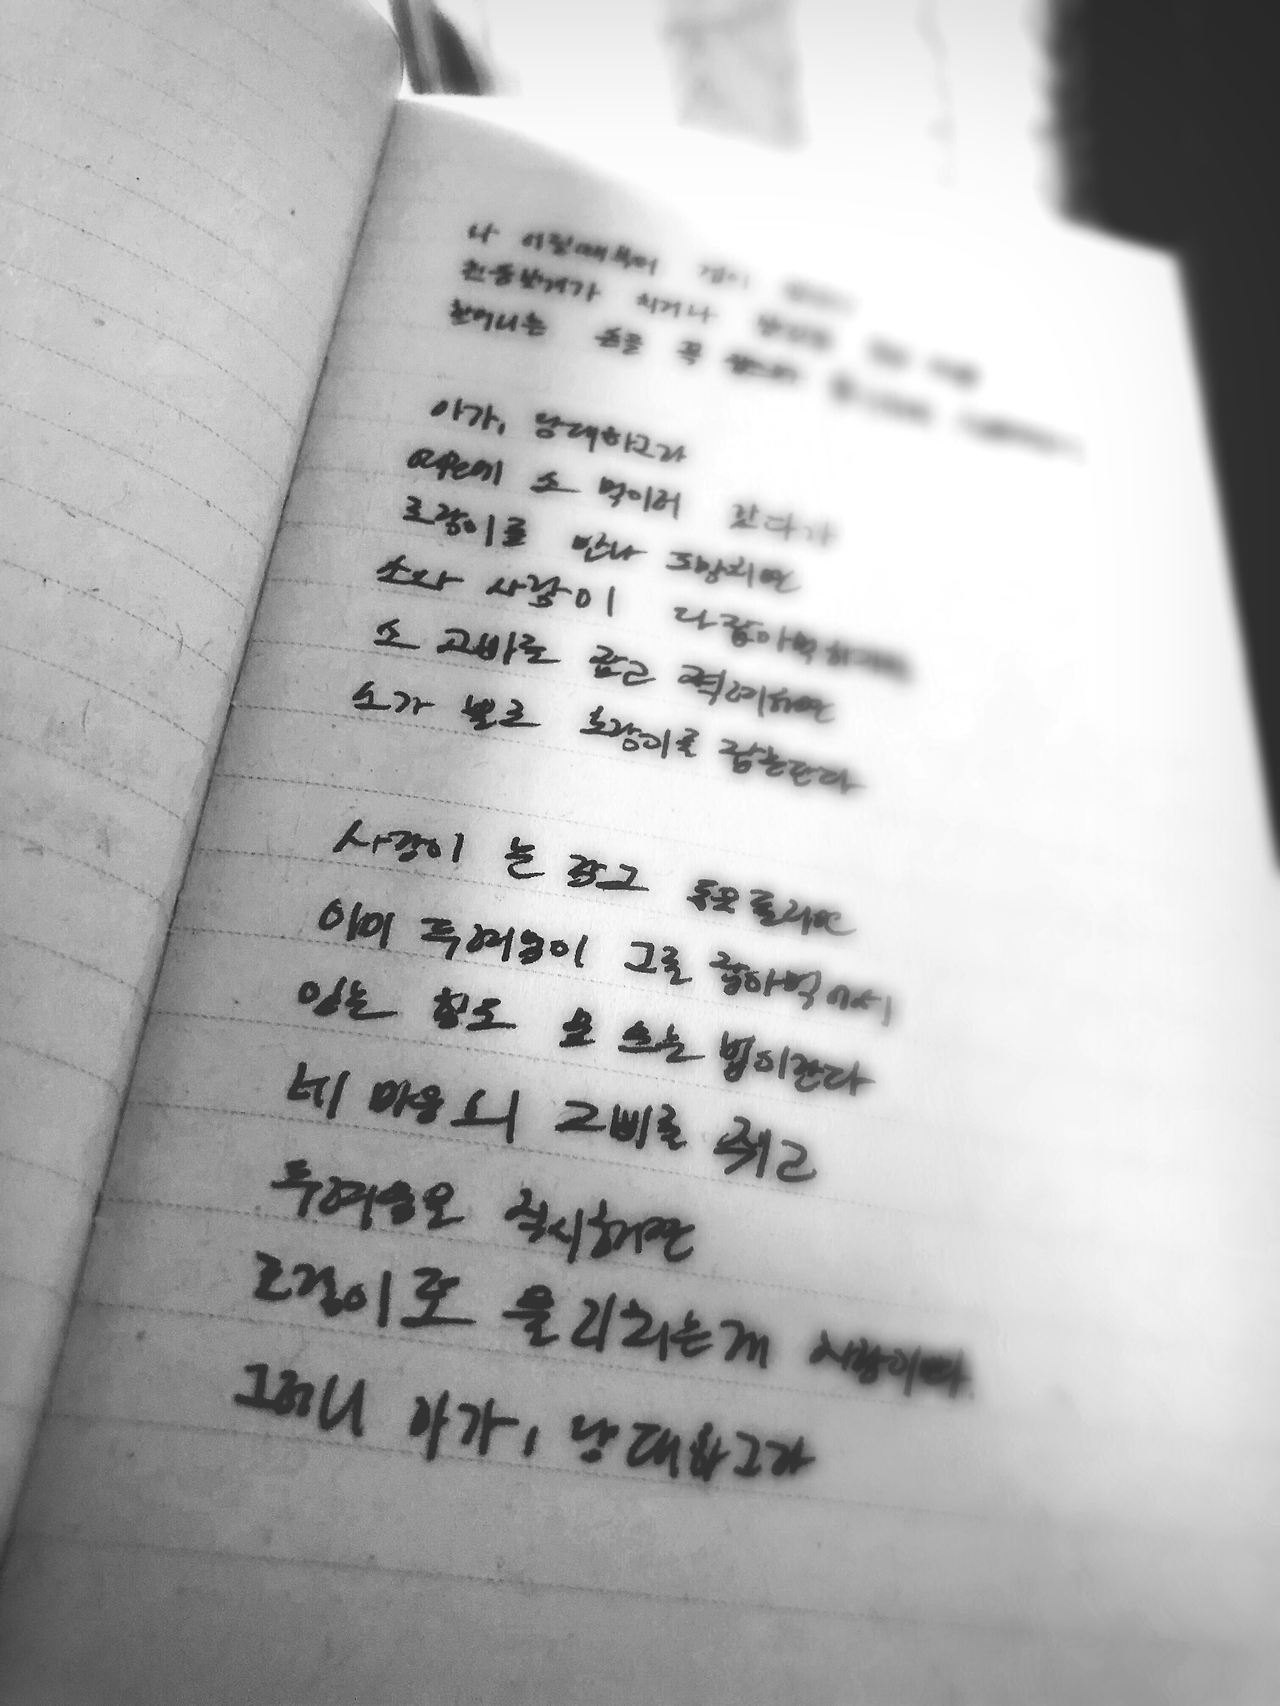 나 어릴때부터 겁이
천둥번개가 치거나
할머니는 손을 꼭
아가, 당대하그라
산에 소 먹이러 갔다가
호랑이를 만나 도망치면
소와 사람이 다 잡아먹히지만
소 고삐를 잡고 격려하면
소가 뿔로 호랑이를 잡는단다
사람이 눈 감고 등을 돌리면
이미 두려움이 그를 잡아먹어서
있는 힘도 못 쓰는 법이란다
네 마음의 고삐를 쥐고
두려움을 직시하면
호랑이도 물리치는게 사람이다
그러니 아가, 당대하그라